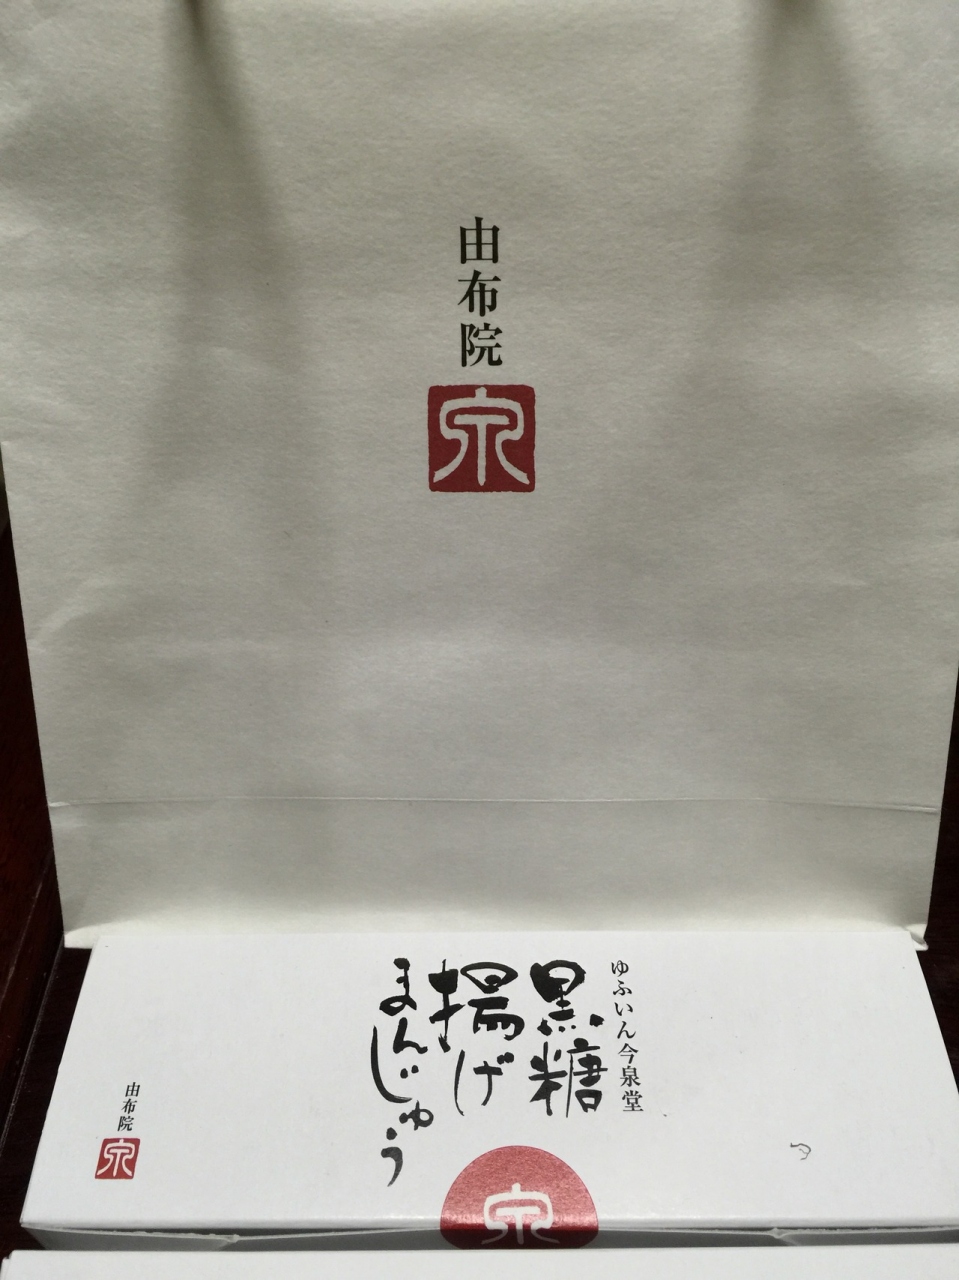 由布院
泉
ゆふいん今泉堂
黒糖
揚げ
まんじゅう
由布院
泉
泉